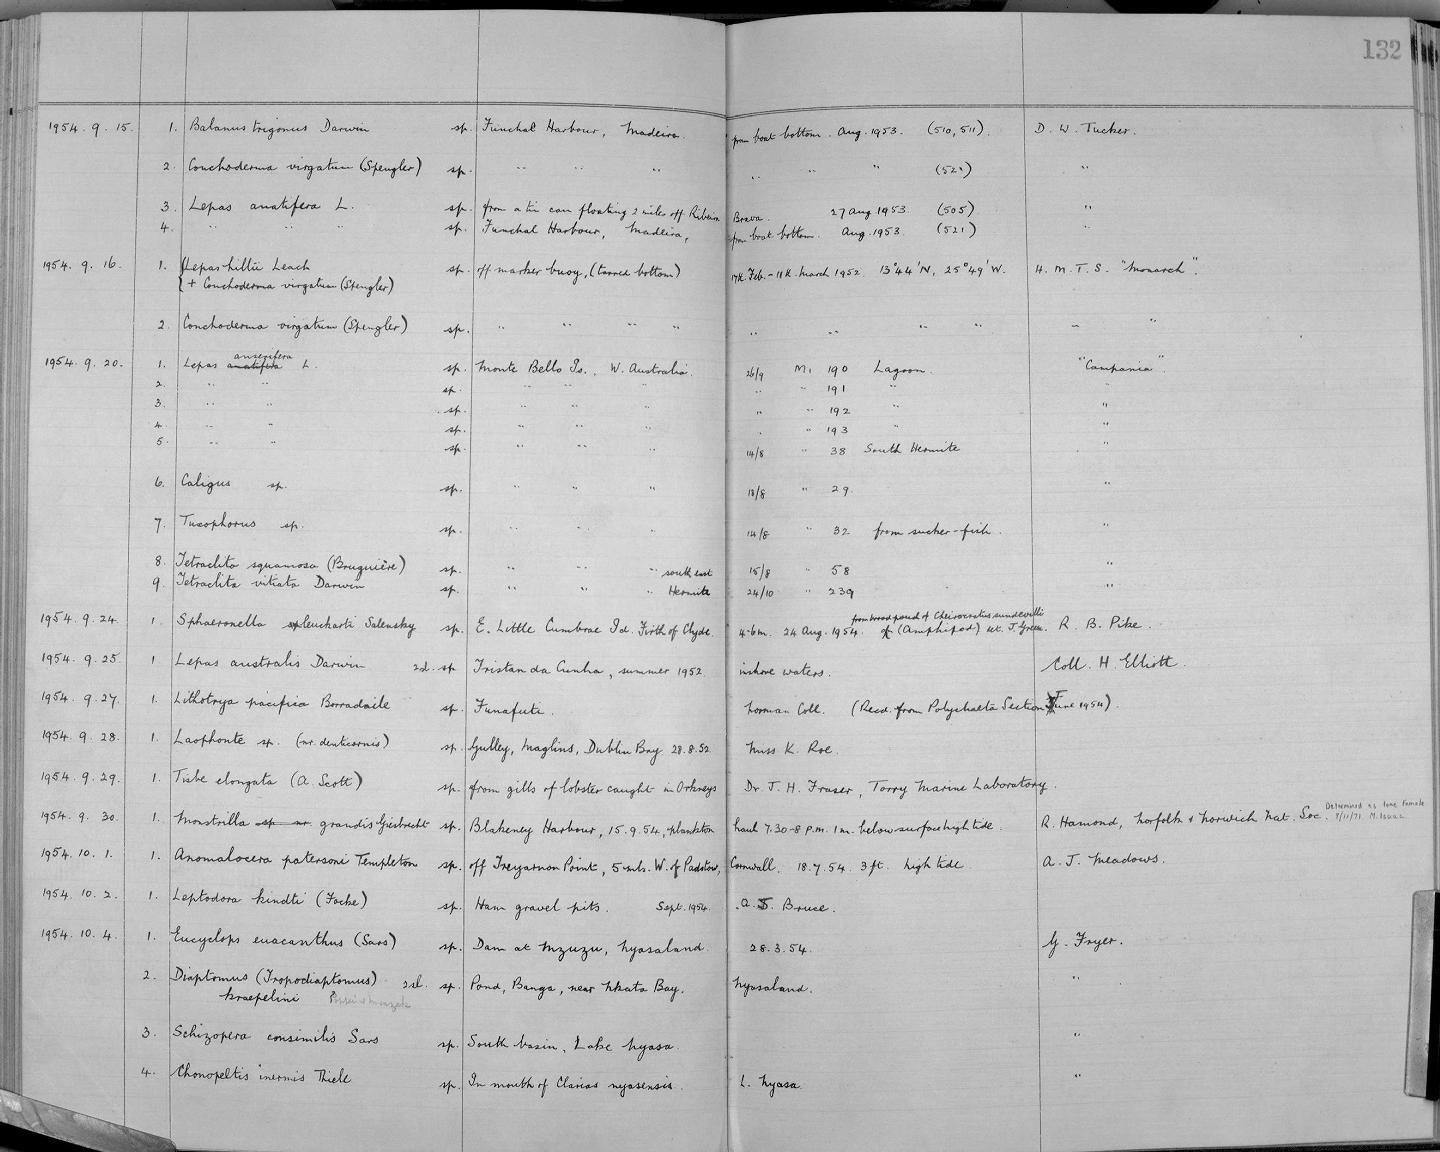 132
1954. 9. 15. 1. Balanus trigonus Darwin sp. Funchal Harbour, Madeira. from boat bottom. Aug. 1953. (510, 511). D. W. Tucker.
2. Conchoderma virgatum (Spengler) sp. " " " " " " (520) "
3. Lepas anatifera L. sp. from a tin can floating 2 miles off Ribeira Brava. 27 Aug 1953. (505) "
4. " " " sp. Funchal Harbour, Madeira, from boat bottom. Aug. 1953. (521) "
1954. 9. 16. 1. Lepas hillii Leach sp. off marker buoy, (tarred bottom) 17th. Feb. - 11th. March 1952. 13°44'N, 25°49'W. H. M. T. S. "Monarch".
+ Conchoderma virgatum (Spengler)
2. Conchoderma virgatum (Spengler) sp. " " " " " " " " " "
anserifera
1954. 9. 20. 1. Lepas anatifera L. sp. Monte Bello Is., W. Australia. 26/9 M. 190 Lagoon. "Campania".
2. " " sp. " " " " " 191 " "
3. " " sp. " " " " " 192 " "
4. " " sp. " " " " " 193 " "
5. " " sp. " " " 14/8 " 38 South Hermite "
6. Caligus sp. sp. " " " 18/8 " 29. "
7. Tuxophorus sp. sp. " " " 14/8 " 32 from sucker-fish. "
8. Tetraclita squamosa (Bruguière) sp. " " " south east 15/8 " 58 "
9. Tetraclita vitiata Darwin sp. " " " Hermite 24/10 " 239 "
from brood pouch of Cheirocratus sundevalli
1954. 9. 24. 1. Sphaeronella leuckarti Salensky sp. E. Little Cumbrae Id. Firth of Clyde. 4-6m. 24 Aug. 1954. of (Amphipod) det. J. Green. R. B. Pike.
1954. 9. 25. 1 Lepas australis Darwin 2sl. sp Tristan da Cunha, summer 1952. inshore waters. Coll. H. Elliott.
1954. 9. 27. 1. Lithotrya pacifica Borradaile sp. Funafuti. Norman Coll. (Recd. from Polychaeta Section June 1954).
1954. 9. 28. 1. Laophonte sp. (nr. denticornis) sp. Gulley, Maglins, Dublin Bay. 28.8.52. Miss K. Roe.
1954. 9. 29. 1. Tisbe elongata (A. Scott) sp. from gills of lobster caught in Orkneys Dr J. H. Fraser, Torry Marine Laboratory.
1954. 9. 30. 1. Monstrilla sp. nr. grandis Giesbrecht sp. Blakeney Harbour, 15.9.54, plankton haul 7.30-8 p.m. 1m. below surface high tide. R. Hamond, Norfolk & Norwich Nat. Soc. Determined as lone female
9/11/71 M. Isaac
1954. 10. 1. 1. Anomalocera patersoni Templeton sp. off Treyarnon Point, 5 mls. W. of Padstow, Cornwall. 18.7.54. 3ft. high tide A. J. Meadows.
1954. 10. 2. 1. Leptodora kindti (Focke) sp. Ham gravel pits. Sept. 1954. A. J. Bruce.
1954. 10. 4. 1. Eucyclops euacanthus (Sars) sp. Dam at Mzuzu, Nyasaland. 28.3.54. G. Fryer.
2. Diaptomus (Tropodiaptomus) 2sl. sp. Pond, Banga, near Nkata Bay. Nyasaland. "
kraepelini
3. Schizopera consimilis Sars sp. South basin, Lake Nyasa. "
4. Chonopeltis inermis Thiele sp. In mouth of Clarias nyasensis. L. Nyasa. "